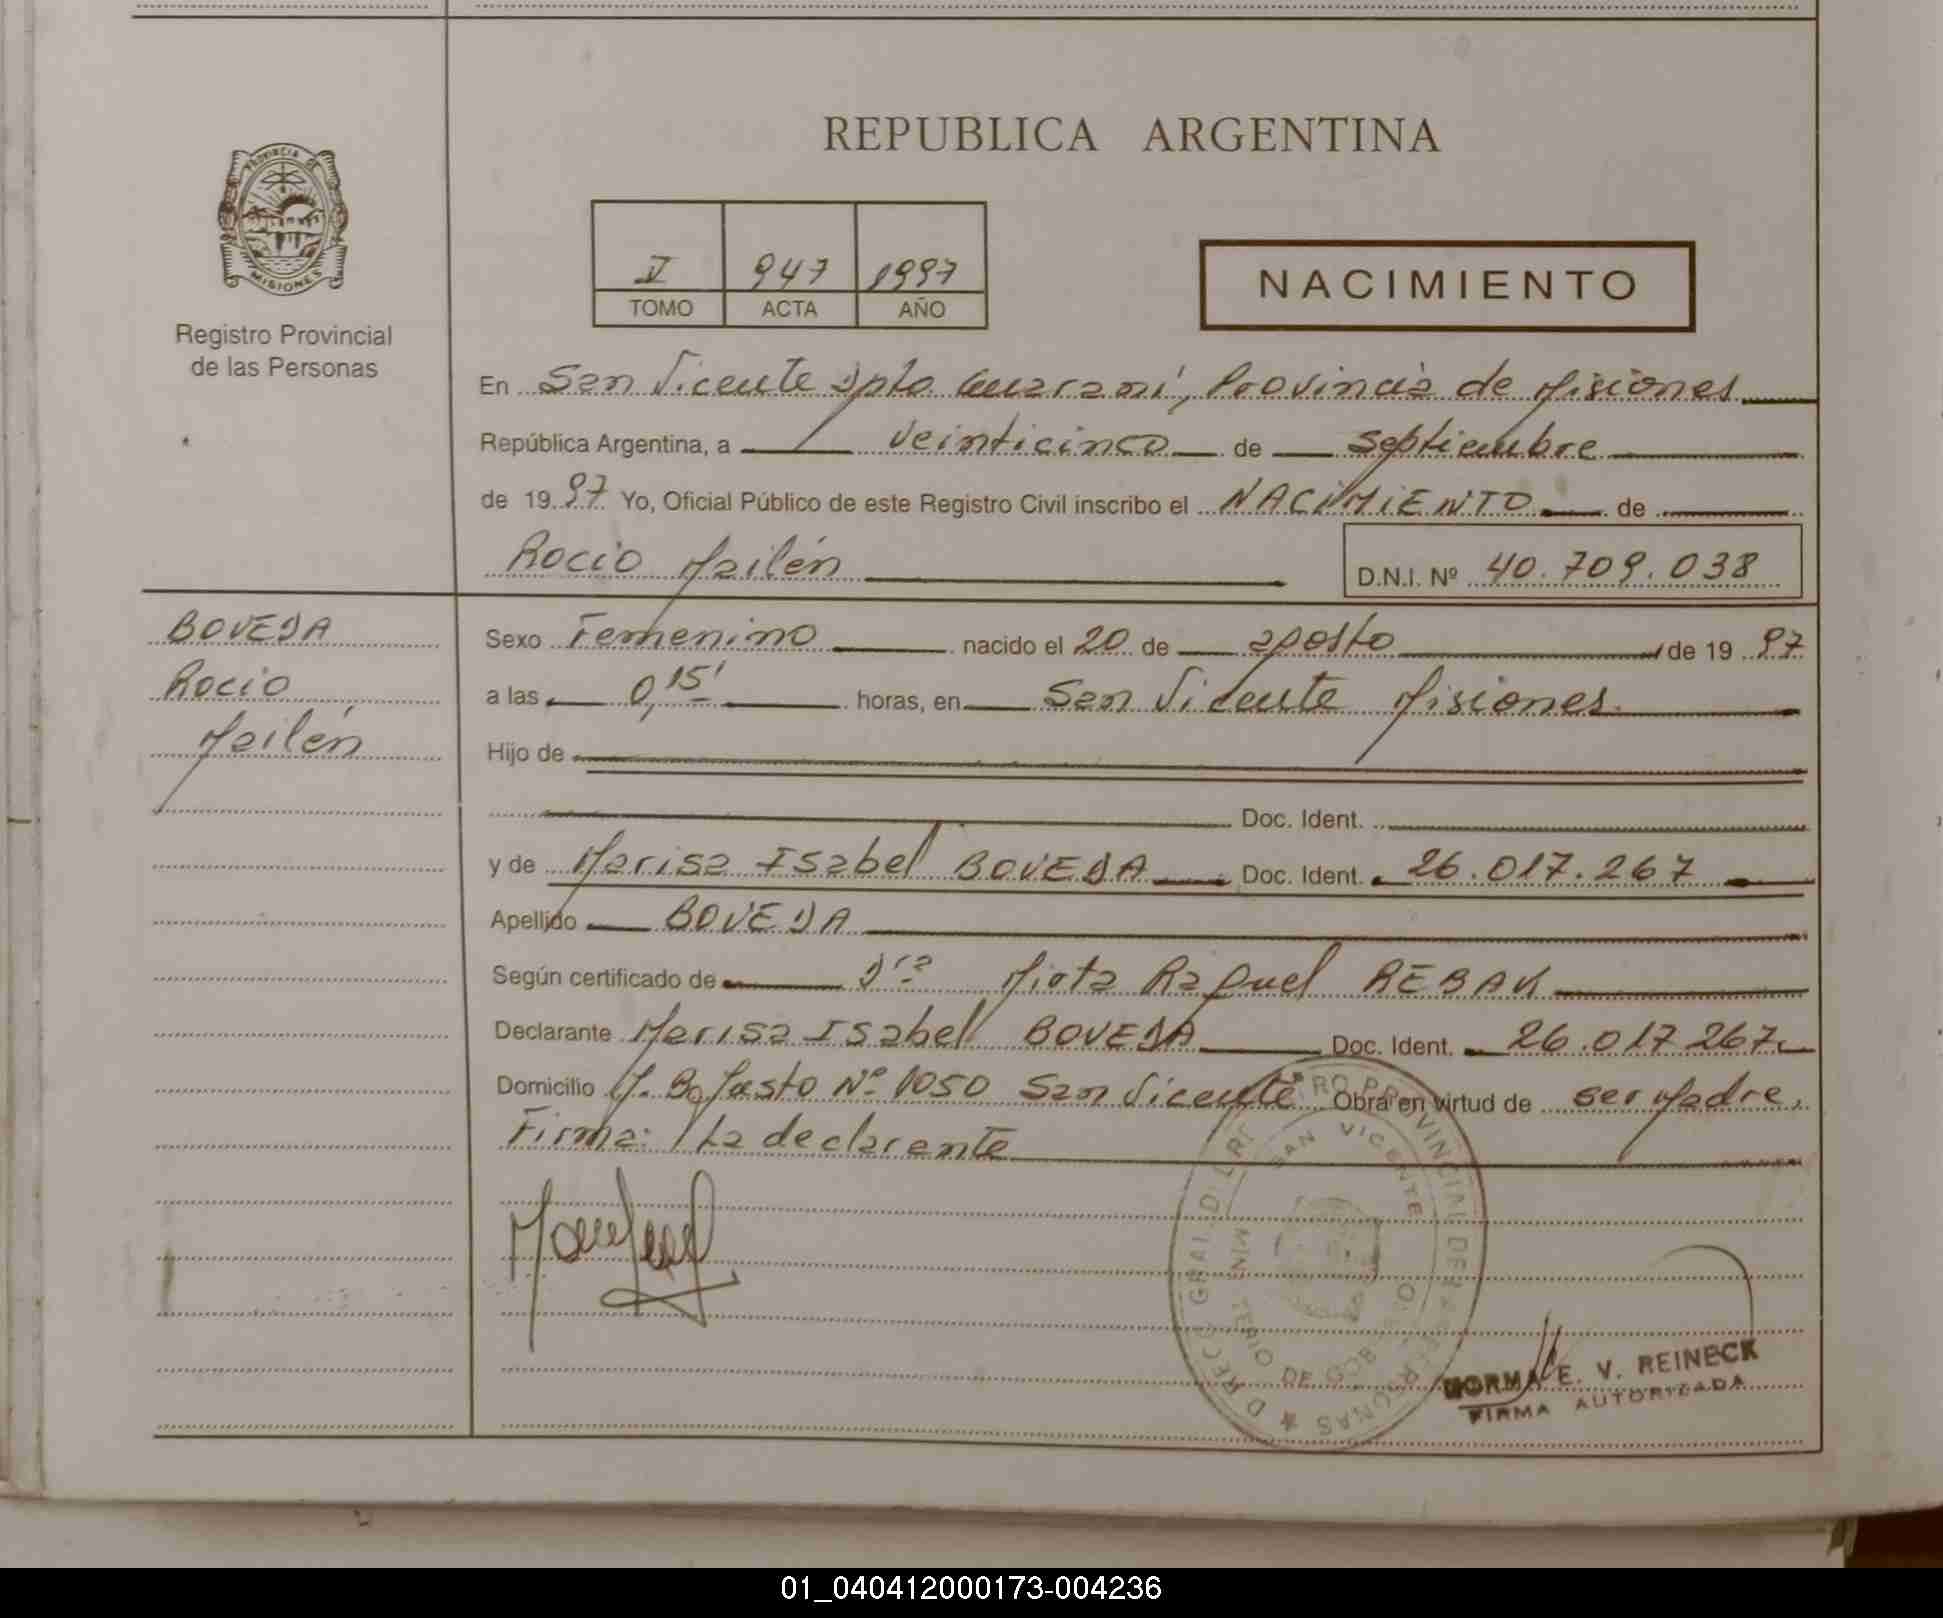 REPUBLICA ARGENTINA
PROVINCIA DE MISIONES
Registro Provincial
de las Personas
V 947 1997
TOMO ACTA AÑO
NACIMIENTO
En San Vicente Dpto. Guaraní, Provincia de Misiones
República Argentina, a veinticinco de septiembre
de 1997 Yo, Oficial Público de este Registro Civil inscribo el NACIMIENTO de
Rocio Mailén D.N.I. Nº 40.709.038
BOVEDA
Rocio
Mailén
Sexo Femenino nacido el 20 de agosto de 1997
a las 0,15' horas, en San Vicente Misiones
Hijo de
Doc. Ident.
y de Marisa Isabel BOVEDA Doc. Ident. 26.017.267
Apellido BOVEDA
Según certificado de Dra Mirta Raquel REBAK
Declarante Marisa Isabel BOVEDA Doc. Ident. 26.017.267
Domicilio Nº 1050 San Vicente Obra en virtud de ser Madre,
Firma: La declarante
REGISTRO PROVINCIAL DE LAS PERSONAS
SAN VICENTE
MINISTERIO DE GOBIERNO
NORMA E. V. REINECK
FIRMA AUTORIZADA
01_040412000173-004236